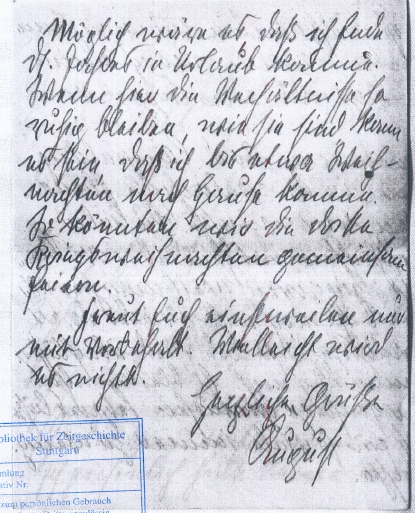 Möglich wäre es daß ich Ende
ds. Jahres in Urlaub komme.
Wenn hier die Verhältnisse so
ruhig bleiben, wie sie sind kann
es sein, daß ich bis etwa Weih-
nachten nach Hause komme.
So könnten wir die dritte
Kriegsweihnachten gemeinsam
feiern.
Freut Euch einstweilen nur
mit Vorbehalt. Vielleicht wird
es nichts.
Herzliche Grüße
August
bliothek für Zeitgeschichte
Stuttgart
mlung
ativ Nr.
zum persönlichen Gebrauch